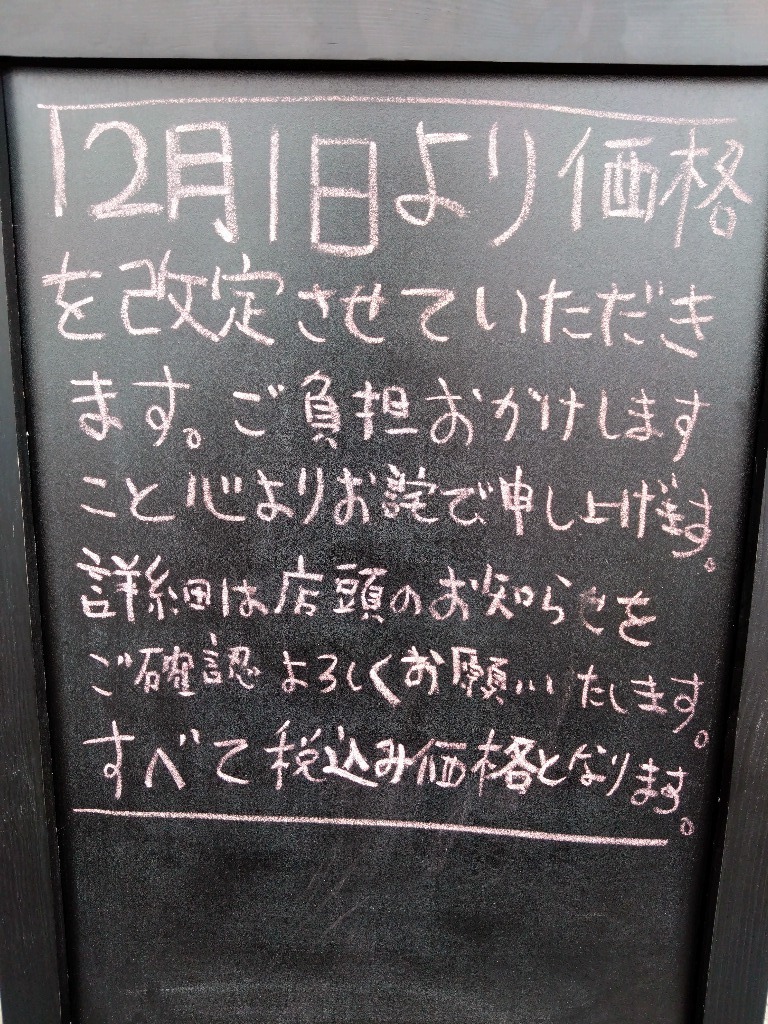 12月1日より価格
を改定させていただき
ます。ご負担おかけします
こと心よりお詫び申し上げます。
詳細は店頭のお知らせを
ご確認よろしくお願いいたします。
すべて税込み価格となります。